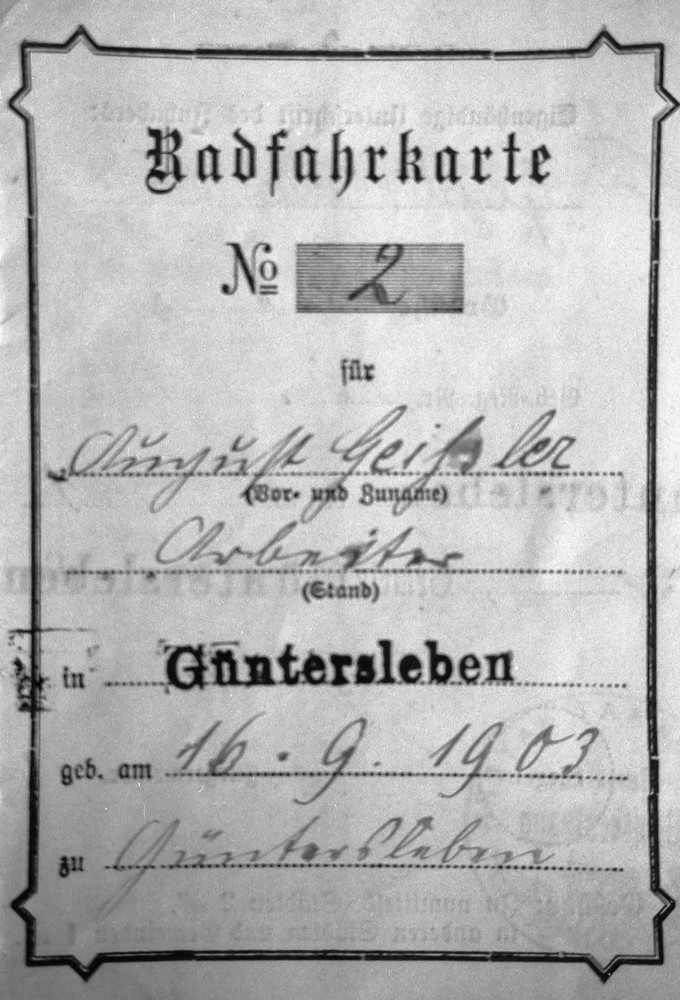 Radfahrkarte
No 2
für
August Geißler
(Vor- und Zuname)
Arbeiter
(Stand)
in Güntersleben
geb. am 16. 9. 1903
zu Güntersleben